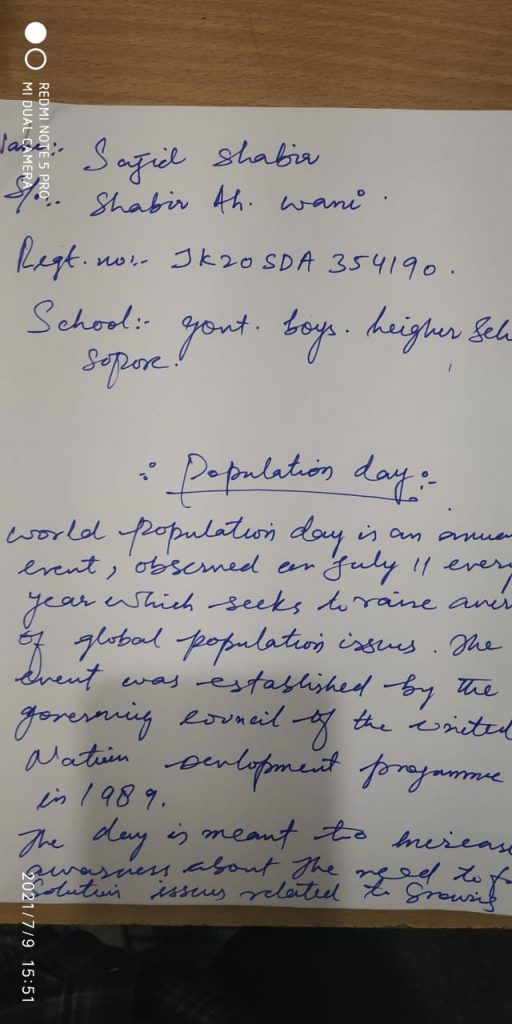 Name:- Sajid Shabir
S/o:- Shabir Ah. wani.
Regt. no:- JK20SDA 354190.
School:- govt. boys. heigher Sch
Sopore.
:- Population day:-
world population day is an annua
event, observed on July 11 every
year which seeks to raise awar
of global population issues. The
event was established by the
governing council of the united
Nation Devlopment progamme
in 1989.
The day is meant to increas
awarness about the need to f
solution issues related to growing
REDMI NOTE 5 PRO
MI DUAL CAMERA
2021/7/9 15:51